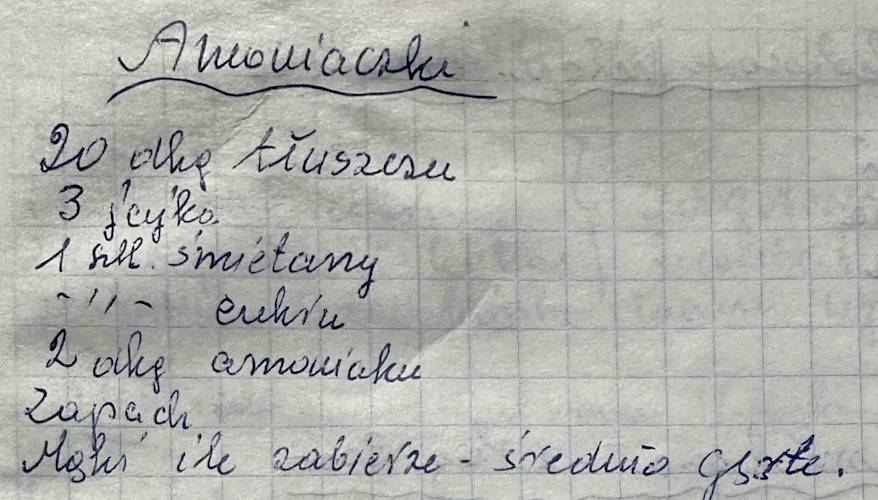 Amoniaczki
20 dkg tłuszczu
3 jajka
1 szkl. śmietany
-"- cukru
2 dkg amoniaku
Zapach
Mąki ile zabierze - średnio gęste.